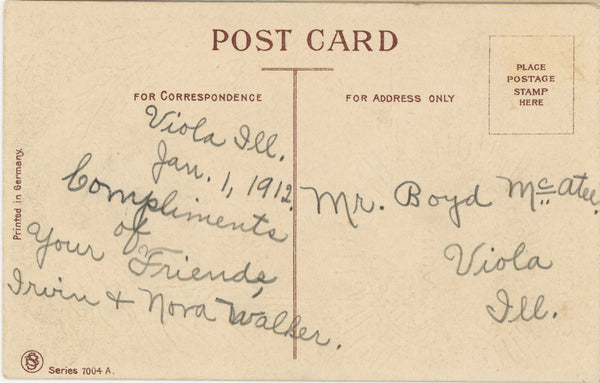 POST CARD
FOR CORRESPONDENCE
FOR ADDRESS ONLY
PLACE
POSTAGE
STAMP
HERE
Viola Ill.
Jan. 1, 1912.
Compliments
of
Your Friends,
Irvin & Nora Walker.
Mr. Boyd McAtee.
Viola
Ill.
Printed in Germany.
Series 7004 A.